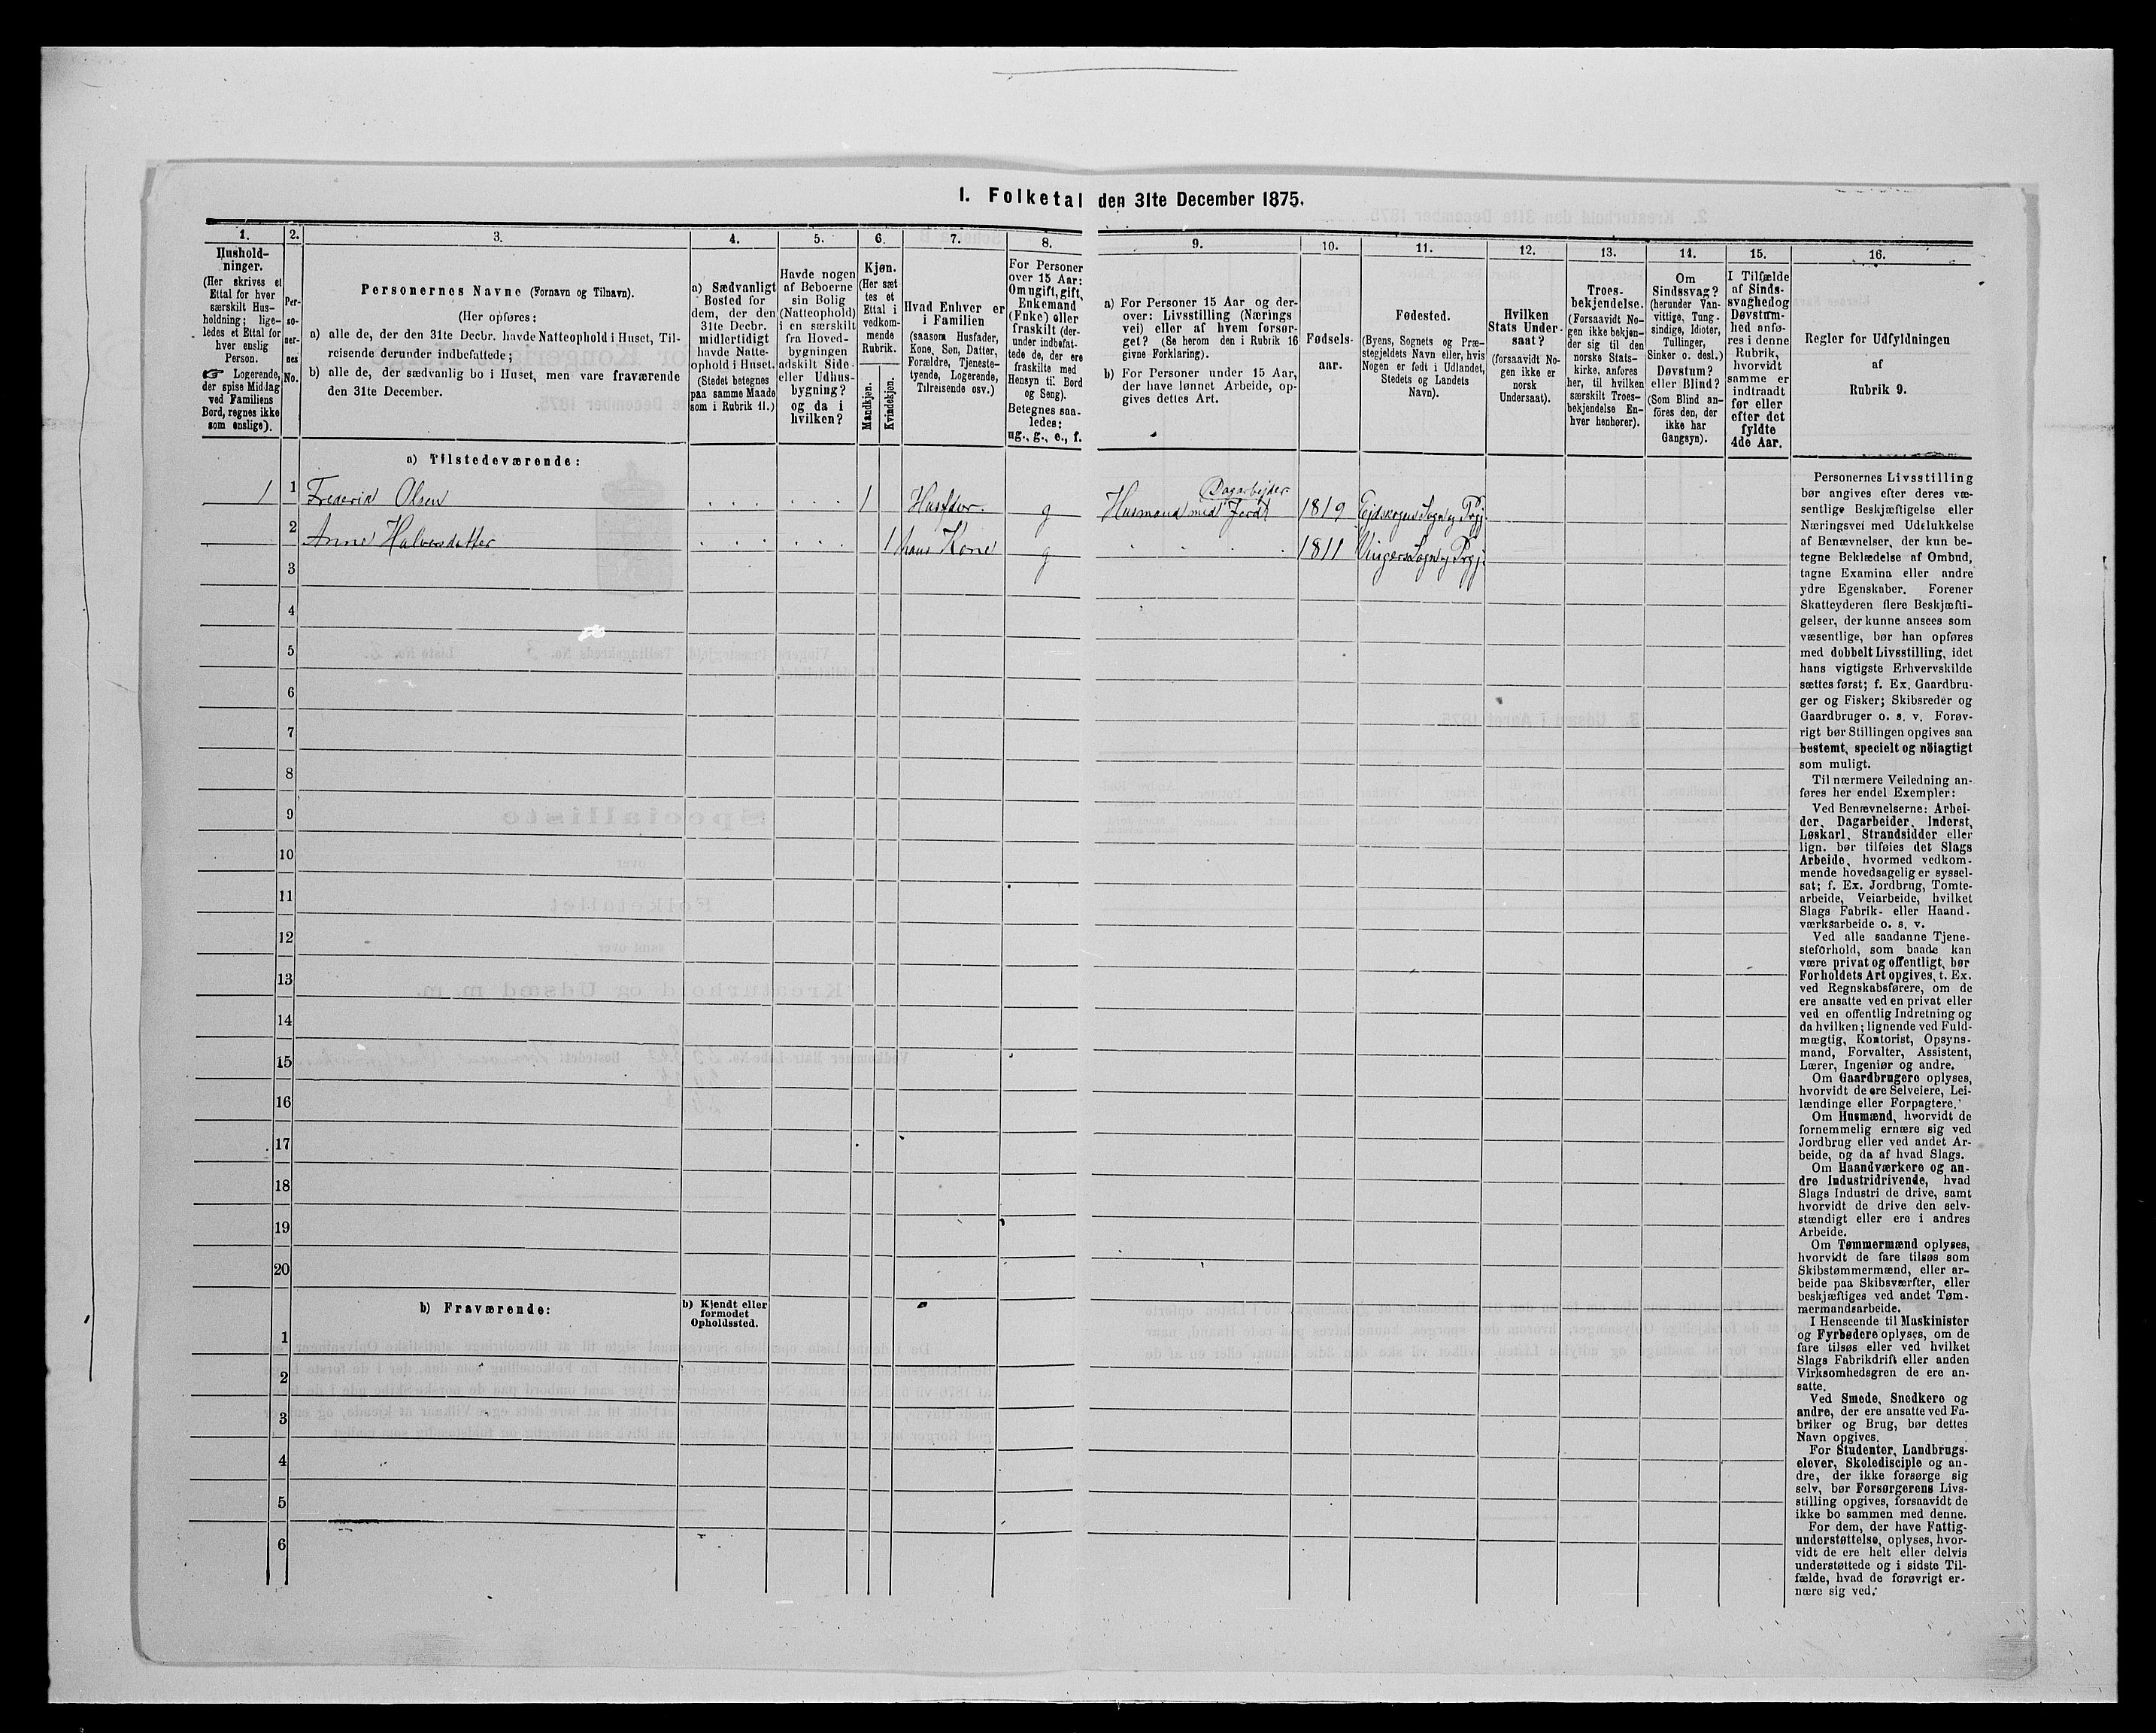 1. Folketal den 31te December 1875.
1.
Hushold-
ninger.
(Her skrives et
Ettal for hver
særskilt Hus-
holdning; lige-
ledes et Ettal for
hver enslig
Person.
☞ Logerende,
der spise Middag
ved Familiens
Bord, regnes ikke
som enslige).
2.
Per-
so-
ner-
nes
No.
3.
Personernes Navne (Fornavn og Tilnavn).
(Her opføres:
a) alle de, der den 31te Decbr. havde Natteophold i Huset, Til-
reisende derunder indbefattede;
b) alle de, der sædvanlig bo i Huset, men vare fraværende
den 31te December.
4.
a) Sædvanligt
Bosted for
dem, der den
31te Decbr.
midlertidigt
havde Natte-
ophold i Huset.
(Stedet betegnes
paa samme Maade
som i Rubrik 11.)
5.
Havde nogen
af Beboerne
sin Bolig
(Natteophold)
i en særskilt
fra Hoved-
bygningen
adskilt Side-
eller Udhus-
bygning?
og da i
hvilken?
6.
Kjøn.
(Her sæt
tes et
Ettal i
vedkom-
mende
Rubrik.
Mandkjøn.
Kvindekjøn.
7.
Hvad Enhver er
i Familien
(saasom Husfader,
Kone, Søn, Datter,
Forældre, Tjeneste-
tyende, Logerende,
Tilreisende osv.)
8.
For Personer
over 15 Aar:
Om ugift, gift,
Enkemand
(Enke) eller
fraskilt (der-
under indbefat-
tede de, der ere
fraskilte med
Hensyn til Bord
og Seng).
Betegnes saa-
ledes:
ug., g., e., f.
9.
a) For Personer 15 Aar og der-
over: Livsstilling (Nærings
vei) eller af hvem forsør-
get? (Se herom den i Rubrik 16
givne Forklaring).
b) For Personer under 15 Aar,
der have lønnet Arbeide, op-
gives dettes Art.
10.
Fødsels-
aar.
11.
Fødested.
(Byens, Sognets og Præ-
stegjeldets Navn eller, hvis
Nogen er født i Udlandet,
Stedets og Landets
Navn).
12.
Hvilken
Stats Under-
saat?
(forsaavidt No-
gen ikke er
norsk
Undersaat).
13.
Troes-
bekjendelse.
(Forsaavidt No-
gen ikke bekjen-
der sig til den
norske Stats-
kirke, anføres
her, til hvilken
særskilt Troes-
bekjendelse En-
hver henhører).
14.
Om
Sindssvag?
(herunder Van-
vittige, Tung-
sindige, Idioter,
Tullinger,
Sinker o. desl.)
Døvstum?
eller Blind?
(Som Blind an-
føres den, der
ikke har
Gangsyn).
15.
I Tilfælde
af Sinds-
svaghed og
Døvstum-
hed anfø-
res i denne
Rubrik,
hvorvidt
samme er
indtraadt
før eller
efter det
fyldte
4de Aar.
16.
Regler for Udfyldningen
af
Rubrik 9.
a) Tilstedeværende:
1 1 Frederik Olsen 1 Husfder. g Husmand med Jord Dagarbejder 1819 Ejdskogens Sogn og Prgj.
2 Anne Halvorsdatter 1 hans Kone g 1811 Vingers Sogn og Prgj.
3
4
5
6
7
8
9
10
11
12
13
14
15
16
17
18
19
20
b) Fraværende:
b) Kjendt eller
formodet
Opholdssted.
1
2
3
4
5
6
Personernes Livsstilling
bør angives efter deres væ-
sentlige Beskjæftigelse eller
Næringsvei med Udelukkelse
af Benævnelser, der kun be-
tegne Beklædelse af Ombud,
tagne Examina eller andre
ydre Egenskaber. Forener
Skatteyderen flere Beskjæfti-
gelser, der kunne ansees som
væsentlige, bør han opføres
med dobbelt Livsstilling, idet
hans vigtigste Erhvervskilde
sættes først; f. Ex. Gaardbru-
ger og Fisker; Skibsreder og
Gaardbruger o. s. v. Forøv-
rigt bør Stillingen opgives saa
bestemt, specielt og nöiagtigt
som muligt.
Til nærmere Veiledning an-
føres her endel Exempler:
Ved Benævnelserne: Arbei-
der, Dagarbeider, Inderst,
Løskarl, Strandsidder eller
lign. bør tilføies det Slags
Arbeide, hvormed vedkom-
mende hovedsagelig er syssel-
sat; f. Ex. Jordbrug, Tomte-
arbeide, Veiarbeide, hvilket
Slags Fabrik- eller Haand-
værksarbeide o. s. v.
Ved alle saadanne Tjene-
steforhold, som baade kan
være privat og offentligt, bør
Forholdets Art opgives, t. Ex.
ved Regnskabsførere, om de
ere ansatte ved en privat eller
ved en offentlig Indretning og
da hvilken; lignende ved Fuld-
mægtig, Kontorist, Opsyns-
mand, Forvalter, Assistent,
Lærer, Ingeniør og andre.
Om Gaardbrugere oplyses,
hvorvidt de ere Selveiere, Lei-
lændinge eller Forpagtere.
Om Husmænd, hvorvidt de
fornemmelig ernære sig ved
Jordbrug eller ved andet Ar-
beide, og da af hvad Slags.
Om Haandværkere og an-
dre Industridrivende, hvad
Slags Industri de drive, samt
hvorvidt de drive den selv-
stændigt eller ere i andres
Arbeide.
Om Tømmermænd oplyses,
hvorvidt de fare tilsøs som
Skibstømmermænd, eller ar-
beide paa Skibsværfter, eller
beskjæftiges ved andet Tøm-
mermandsarbeide.
I Henseende til Maskinister
og Fyrbødere oplyses, om de
fare tilsøs eller ved hvilket
Slags Fabrikdrift eller anden
Virksomhedsgren de ere an-
satte.
Ved Smede, Snedkere og
andre, der ere ansatte ved Fa-
briker og Brug, bør dettes
Navn opgives.
For Studenter, Landbrugs-
elever, Skoledisciple og an-
dre, der ikke forsørge sig
selv, bør Forsørgerens Livs-
stilling opgives, forsaavidt de
ikke bo sammen med denne.
For dem, der have Fattig-
understøttelse, oplyses, hvor-
vidt de ere helt eller delvis
understøttede og i sidste Til-
fælde, hvad de forøvrigt er-
nære sig ved.